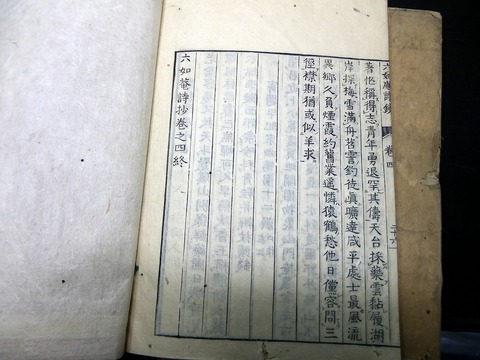 六如庵詩鈔 卷四 二十六
著作稱得志青年勇退罕其儔天台採藥雲黏屐湖
岸探梅雪滿舟苕霅釣徒真曠達咸平處士最風流
異鄉久負煙霞約舊業遙憐猿鶴愁他日僮容問三
徑襟期猶或似羊求
六如菴詩抄卷之四終